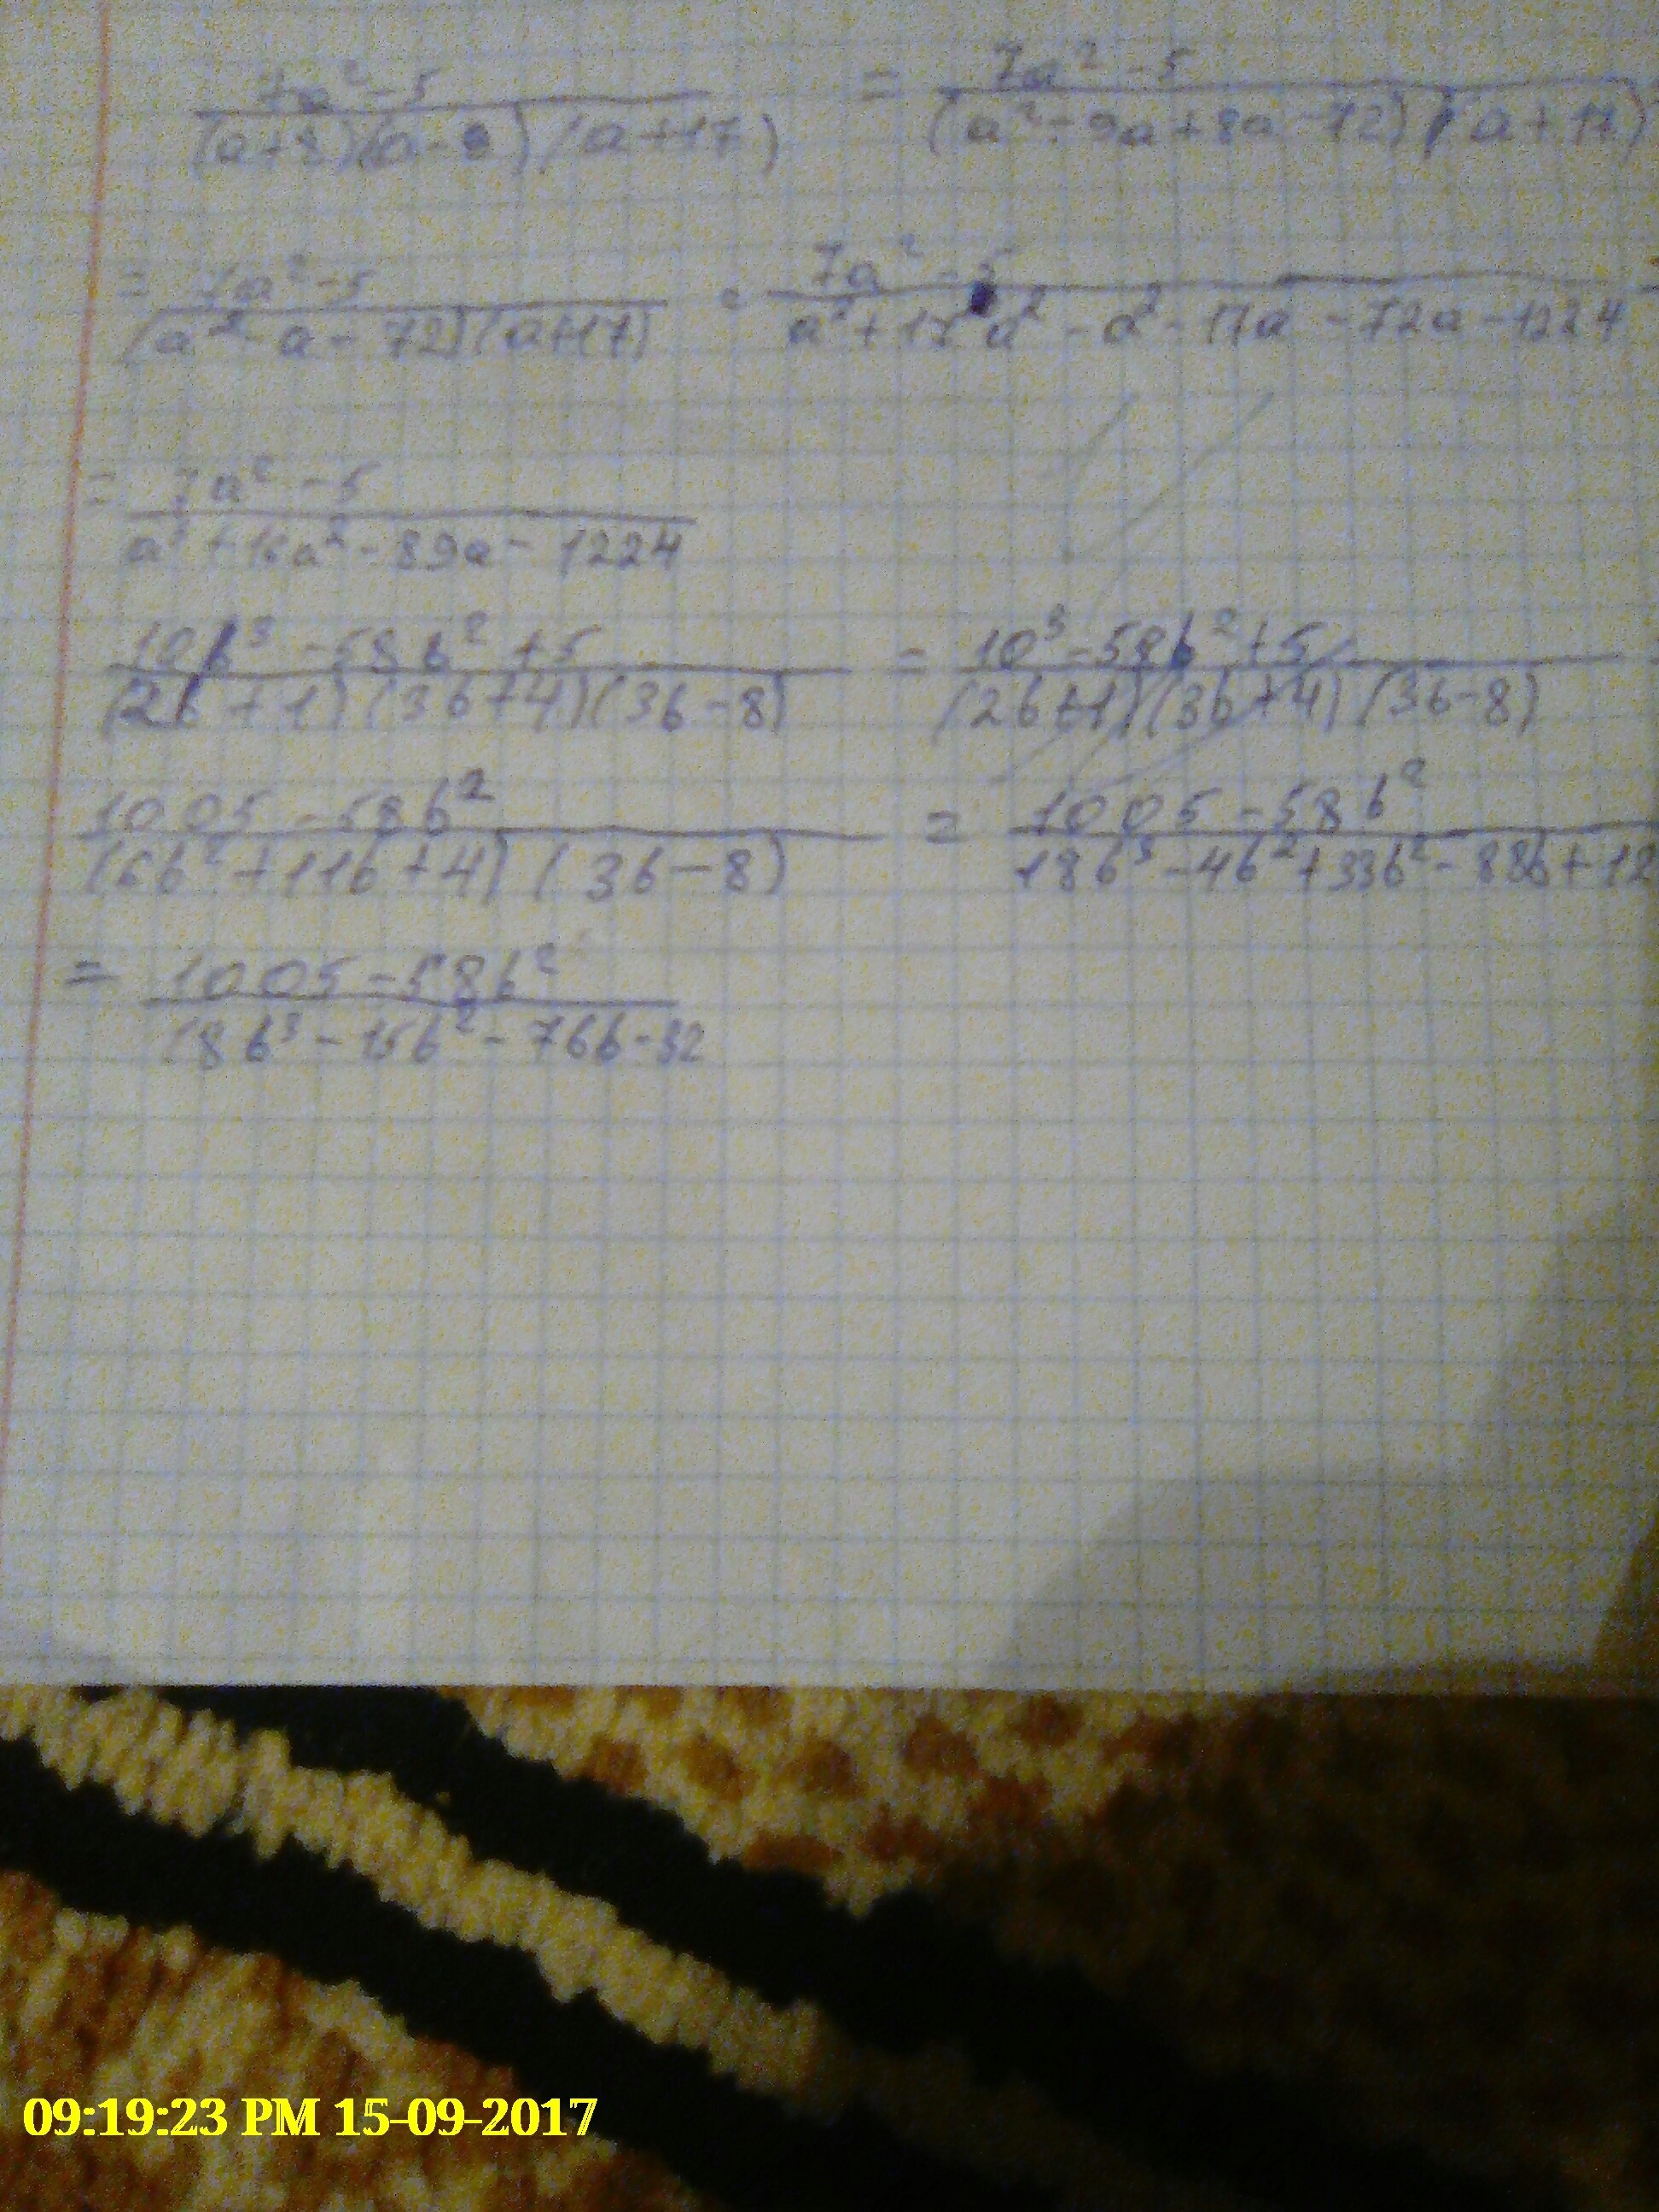 7a² - 5 / (a+8)(a-9)(a+17) = 7a² - 5 / (a² - 9a + 8a - 72)(a+17)
= 7a² - 5 / (a² - a - 72)(a+17) = 7a² - 5 / a³ + 17a² - a² - 17a - 72a - 1224
= 7a² - 5 / a³ + 16a² - 89a - 1224
10b³ - 58b² + 5 / (2b+1)(3b+4)(3b-8) = 10³ - 58b² + 5 / (2b+1)(3b+4)(3b-8)
1005 - 58b² / (6b² + 11b + 4)(3b-8) = 1005 - 58b² / 18b³ - 4b² + 33b² - 88b + 12
= 1005 - 58b² / 18b³ - 15b² - 76b - 32
09:19:23 PM 15-09-2017